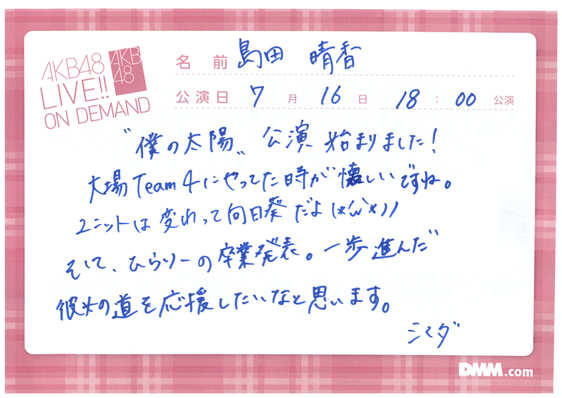 AKB48
LIVE!!
ON DEMAND
AKB
48
名前 島田 晴香
公演日 7月16日 18:00 公演
"僕の太陽" 公演 始まりました!
大場Team4にやってた時が懐しいですね。
ユニットは変わって向日葵だよ(*'ω'*)ノノ
そして、ひらりーの卒業発表。一歩進んだ
彼女の道を応援したいなと思います。
シマダ
DMM.com